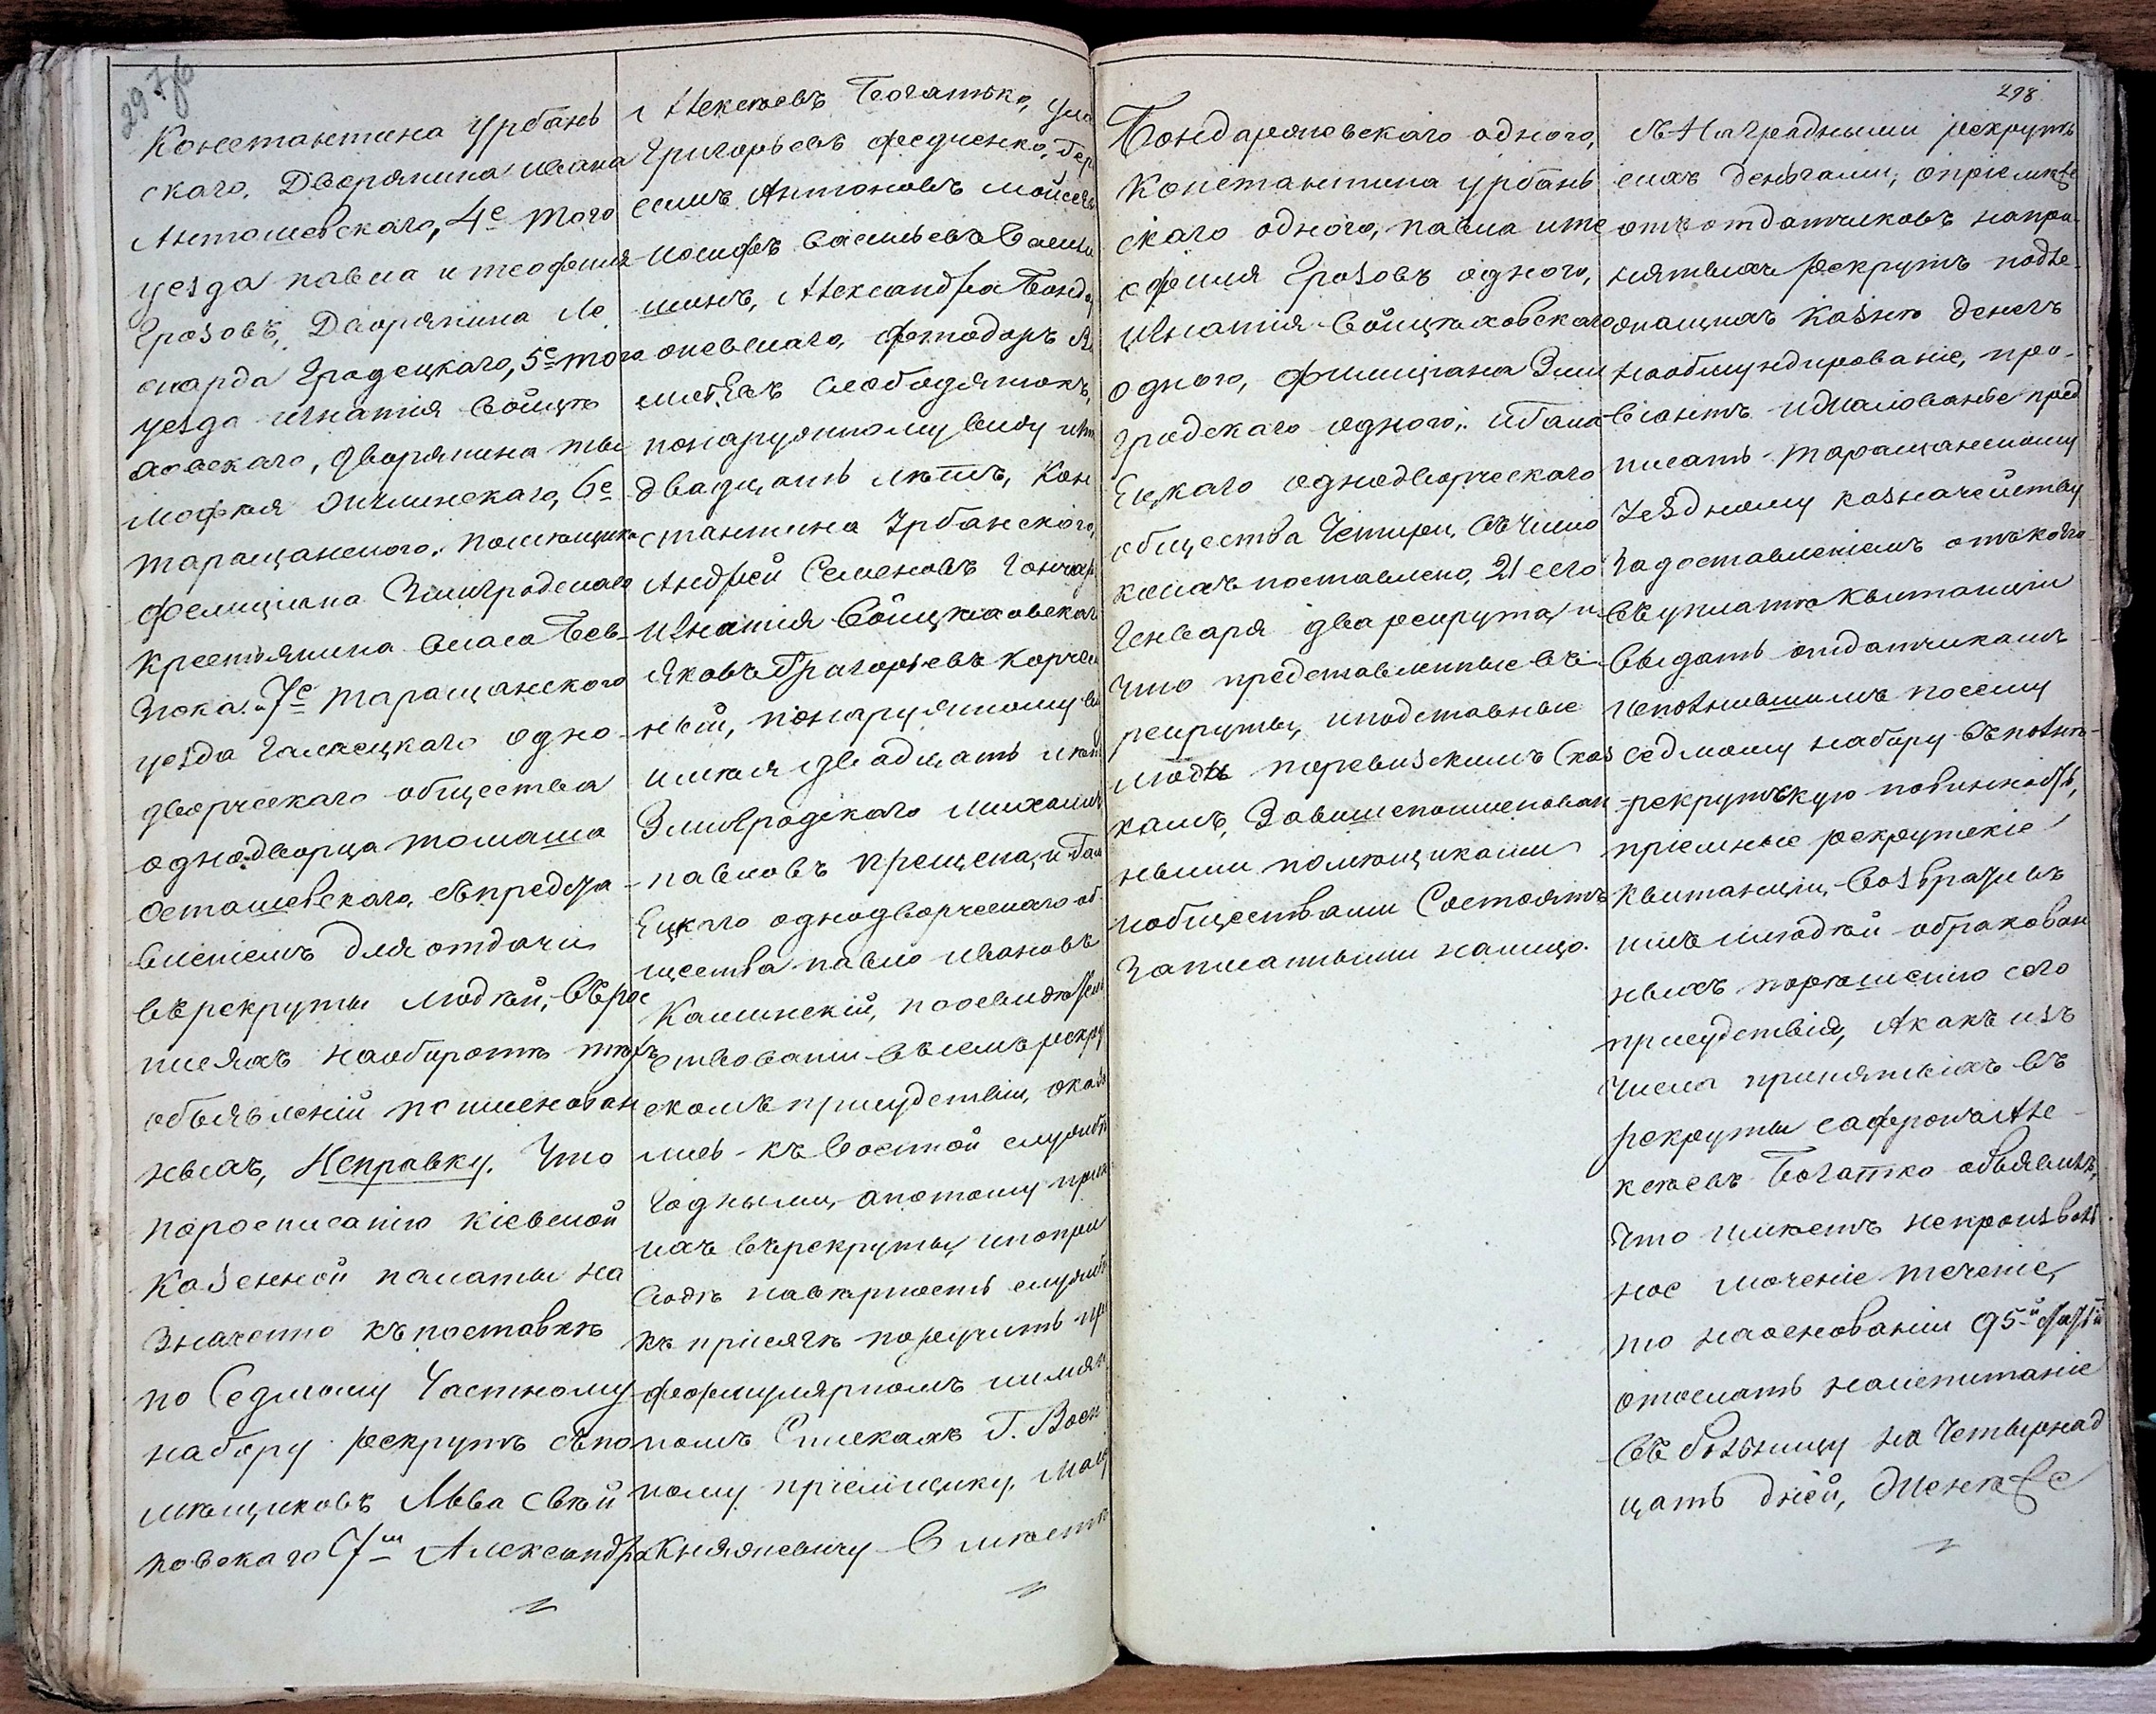 297об
Константина Урбань
скаго, Дворянина Ивана
Антошевскаго, 4е того
уезда павла и теофиля
Грозовъ, Дворянина Ле
онарда Градецкаго, 5е того
уезда игнатія Войцѣ
ховскаго, дворянина ти
мофея Оичинскаго, 6е
таращанского, помещика
фелициана Змиградского
крестьянина Власа Бев-
зюка 7е таращанского
уезда Галаецкаго одно-
дворческаго общества
однодворца томаша
Осташевскаго, съ предста-
вленіемъ для отдачи
въ рекруты людей, въ рос
писяхъ наоборотѣ техъ
объявленій поименован
ныхъ, Исправку. Что
поросписанію кіевской
Казенной палаты на
значенно къ поставкѣ
по Седмому Частному
набору рекрутъ съ по
мещиковъ Льва Свѣй
ковскаго 7ми Александра
Алексеевъ Богатько,
Григорьевъ федченко,
Антоновъ мойсе
иосифъ васильевъ
Александра Бонда
оневскаго, фтодоръ
слободянюкъ,
понаружному виду
двадцать лѣтъ, Кон
стантина Урбанскаго,
Андрей Семеновъ Гончар
Игнатія Войцѣховскаго
Яковъ Григорьевъ корчев
ный, понаружному
имѣя двадцать лѣтъ
Змиградскаго михаилъ
павловъ Прещепа, и Гала
Ецкаго однодворческаго об
щества павло ивановъ
Калинскій, по освидѣтель
ствованіи въ семъ рекру
скомъ присудствіи, оказа
лись къ воєнной службѣ
годными, апотому приня
ихъ въ рекруты, и по при
водѣ на вѣрность службы
къ присягѣ поручить при
формулярномъ и имян
номъ Спискахъ Г. Воен
ному пріемщику,
Княжевичу Вмѣстѣ
298
Бондаряковскаго одного,
Константина урбань
скаго одного, павла и те
офиля Грозовъ одного,
Игнатія Войцѣховскаго
одного, филиціана Зми
градскаго одного, и Гала
Ецкаго однодворческаго
общества Четыри, въ число
коихъ поставлено, 21 сего
Генваря два рекрута, и
Что представленные въ
рекруты, и подставные
люди поревизскимъ сказ
камъ, Завишепоименован
ными помѣщиками
и обществами Состоятъ
записанными налицо.
съ Наградными рекрут
скихъ деньгами, о пріемке
отъ отдатчиковъ напри
нятыхъ рекрутъ подле
жащихъ казне денегъ
на обмундированіе, про-
віантъ и жалованье пред
писать таращанскому
уездному казначейству
За доставленіемъ отъ кого
въ уплате квитанціи
выдать отдатчикамъ
исполнившимъ по сему
седмому набору въ полнѣ-
рекрутскую повинность,
пріемные рекрутскіе
квитанціи, возвратя къ
нимъ и людей обракован
ныхъ порешенію сего
присудствія, А какъ изъ
числа принятыхъ въ
рекруты сафронъ Але-
ксеевъ Богатко объявилъ,
что имѣетъ непроизволь
ное моченіе теченіе,
то наоснованіи 95й статьи
отослать на испитаніе
въ больницу на Четырнад
цать дней,